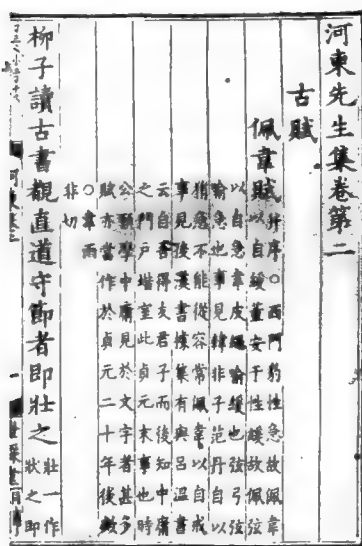 河東先生集卷第二
古賦
佩韋賦并序○西門豹性急故佩韋
以自緩董安于性緩故佩弦
以自急韋皮繩喻緩也弦弓弦
喻急也事見韓非子范丹自以
狷急不能從容常佩韋以自戒
事見後漢書據集有與呂溫書
云自吾得友君子而後知中庸
之門戶堦室此貞元末事也時
公願學中庸見於文字者甚多
賦亦當作於貞元二十年後
○韋雨
非切
柳子讀古書覩直道守節者即壯之壯一作
狀之即